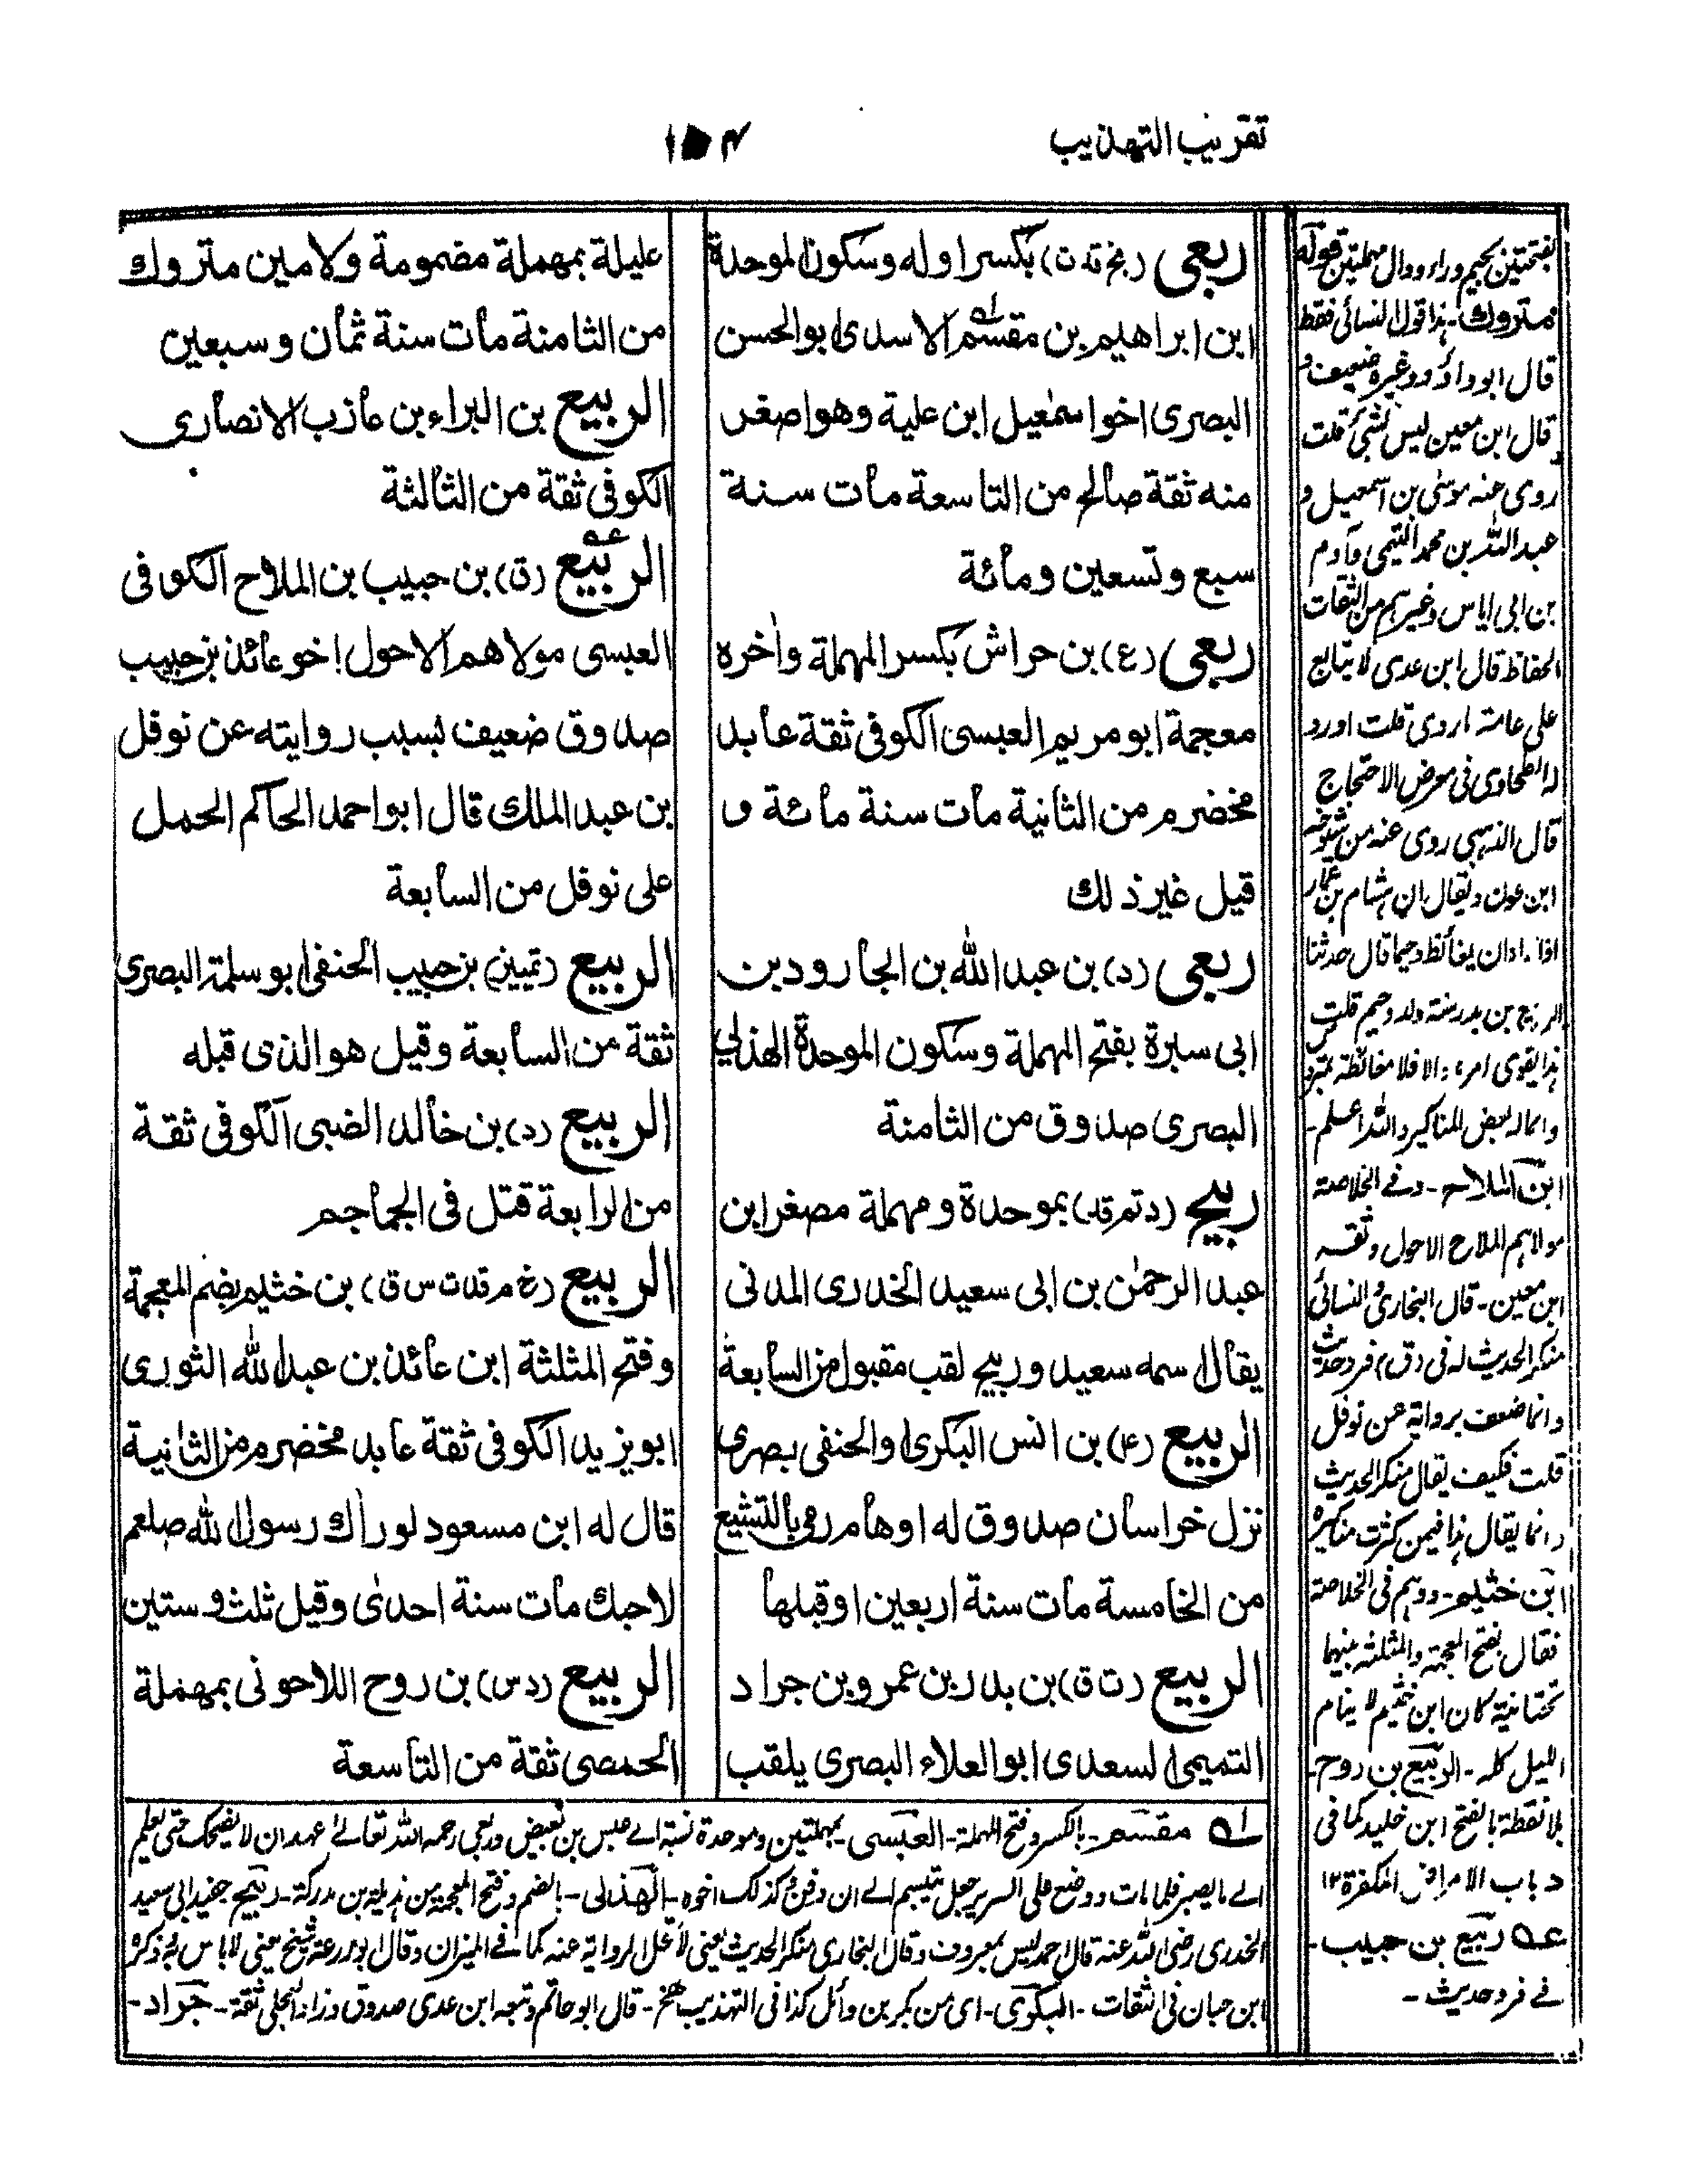 تقریب التهذیب
۱۵۴
ربعی (بخ قد ت) بکسر اوله وسکون الموحدة
ابن ابراهیم بن مقسم الاسدی ابو الحسن
البصری اخو اسمٰعیل ابن علیة وهو اصغر
منه ثقة صالح من التاسعة مات سنة
سبع وتسعین ومائة
ربعی (ع) بن حراش بکسر المهملة واٰخره
معجمة ابو مریم العبسی الکوفی ثقة عابد
مخضرم من الثانیة مات سنة مائة و
قیل غیر ذلك
ربعی (د) بن عبد الله بن الجارود بن
ابی سبرة بفتح المهملة وسکون الموحدة الهذلی
البصری صدوق من الثامنة
ربیح (د تم ق) بموحدة ومهملة مصغر ابن
عبد الرحمٰن بن ابی سعید الخدری المدنی
یقال اسمه سعید وربیح لقب مقبول من السابعة
الربیع (۴) بن انس البکری او الحنفی بصری
نزل خراسان صدوق له اوهام رمی بالتشیع
من الخامسة مات سنة اربعین او قبلها
الربیع (ت ق) بن بدر بن عمرو بن جراد
التمیمی السعدی ابو العلاء البصری یلقب
علیلة بمهملة مضمومة ولامین متروك
من الثامنة مات سنة ثمان وسبعین
الربیع بن البراء بن عازب الانصاری
الکوفی ثقة من الثالثة
الربیع (ق) بن حبیب بن الملاح الکوفی
العبسی مولاهم الاحول اخو عائذ بن حبیب
صدوق ضعیف بسبب روایته عن نوفل
بن عبد الملك قال ابو احمد الحاکم الحمل
علی نوفل من السابعة
الربیع (تمییز) بن حبیب الحنفی ابو سلمة البصری
ثقة من السابعة وقیل هو الذی قبله
الربیع (د) بن خالد الضبی الکوفی ثقة
من الرابعة قتل فی الجماجم
الربیع (خ م قد ت س ق) بن خثیم بضم المعجمة
وفتح المثلثة ابن عائذ بن عبد الله الثوری
ابو یزید الکوفی ثقة عابد مخضرم من الثانیة
قال له ابن مسعود لو راٰك رسول الله صلعم
لاحبك مات سنة احدیٰ وقیل ثلث وستین
الربیع (د س) بن روح اللاحونی بمهملة
الحمصی ثقة من التاسعة
بفتحتین بجیم وراء ودال مهملتین قوله
متروك - هذا قول النسائی فقط
قال ابو داؤد وغیره ضعیف و
قال ابن معین لیس بشئ قلت
روی عنه موسٰی بن اسمعیل و
عبد الله بن محمد التیمی وآدم
بن ابی ایاس وغیرهم من الثقات
الحفاظ قال ابن عدی لا یتابع
علی عامة ما روی قلت اورد
له الطحاوی فی معرض الاحتجاج
قال الذهبی روی عنه من شیوخه
ابن عون ویقال ان هشام بن عمار
اذا اراد ان یغالط دحیما قال حدثنا
الربیع بن بدر سنة ولد دحیم قلت
هذا یقوی امره والا فلا مغالطة
وانما له بعض المناکیر والله اعلم -
ابن الملاح - وفی الخلاصة
مولاهم الملاح الاحول وثقه
ابن معین - قال البخاری والنسائی
منکر الحدیث له فی (ق) فرد حدیث
وانما ضعف بروایة عن نوفل
قلت فکیف یقال منکر الحدیث
وانما یقال هذا فیمن کثرت مناکیره
ابن خثیم - ووهم فی الخلاصة
فقال بفتح المعجمة والمثلثة بینهما
تحتانیة کان ابن خثیم لا ینام
اللیل کله - الربیع بن روح -
بلا نقطة بالفتح ابن خلید کما فی
باب الامراض المکفرة ۱۲
عه ربیع بن حبیب -
فی فرد حدیث -
له مقسم - بالکسر وفتح المهملة - العبسی - بمهملتین وموحدة نسبة الی عبس بن بغیض وربعی رحمه الله تعالی عهد ان لا یضحك حتی یعلم
الی ما یصیر فلما مات ووضع علی السریر جعل یتبسم الی ان دفن وکذلك اخوه - الهذلی - بالضم وفتح المعجمة من هذیلة بن مدرکة - ربیح حفید ابی سعید
الخدری رضی الله عنه قال احمد لیس بمعروف وقال البخاری منکر الحدیث یعنی لا تحل الروایة عنه کما فی المیزان وقال ابو زرعة شیخ یعنی لا باس به وذکره
ابن حبان فی الثقات - البکری - ای من بکر بن وائل کذا فی التهذیب - قال ابو حاتم وتبعه ابن عدی صدوق وزاد العجلی ثقة - جراد -